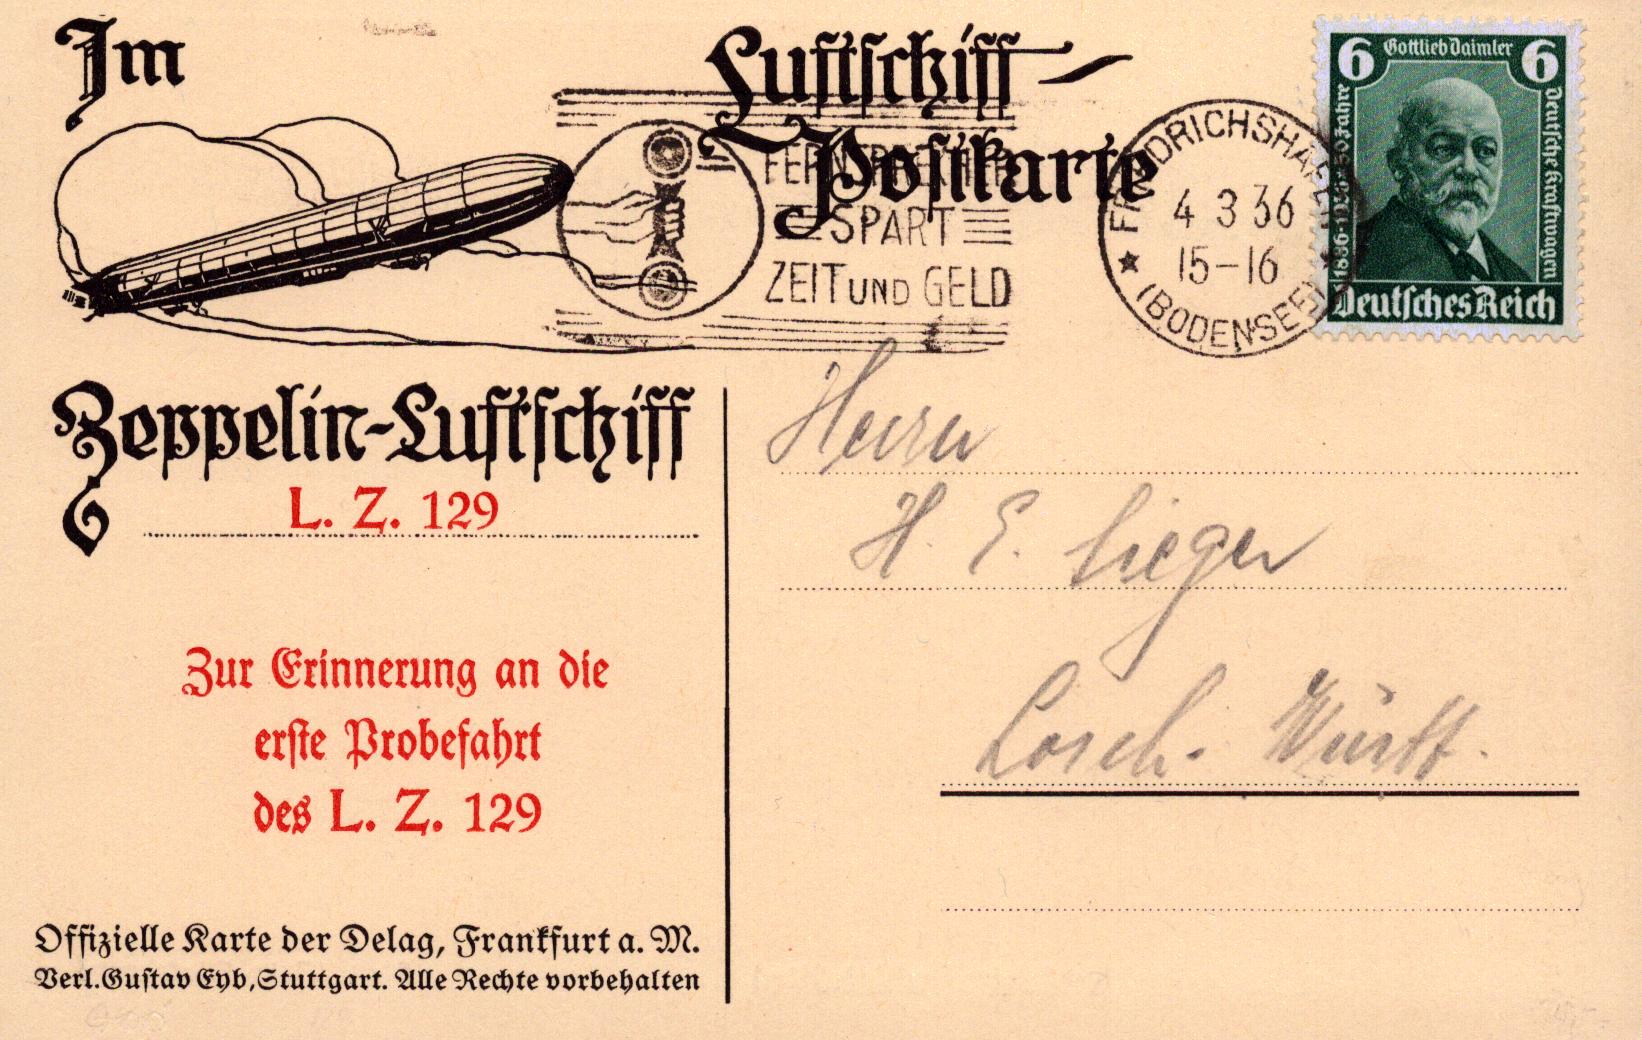 Im
Luftschiff-
Postkarte
FERNSPRECHER
SPART
ZEIT UND GELD
FRIEDRICHSHAFEN
4 3 36
15-16
(BODENSEE)
6 Gottlieb Daimler 6
1886-1936 50 Jahre
Deutsche Kraftwagen
Deutsches Reich
Zeppelin-Luftschiff
L. Z. 129
Zur Erinnerung an die
erste Probefahrt
des L. Z. 129
Offizielle Karte der Delag, Frankfurt a. M.
Verl. Gustav Eyb, Stuttgart. Alle Rechte vorbehalten
Herrn
H. E. Sieger
Lorch. Württ.